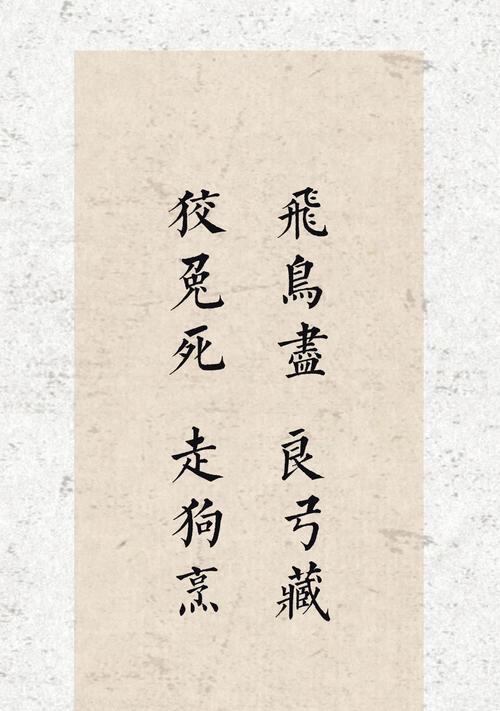 飛鳥盡 良弓藏
狡兔死 走狗烹